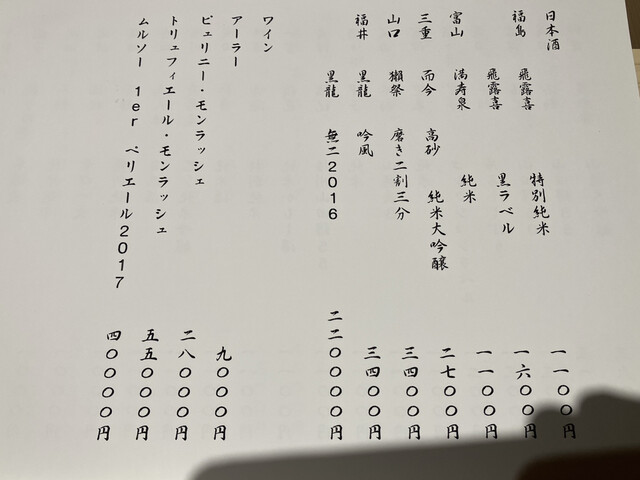 日本酒
福島 飛露喜 特別純米 一一〇〇円
飛露喜 黒ラベル 一六〇〇円
富山 満寿泉 純米 一一〇〇円
三重 而今 高砂 純米大吟醸 二七〇〇円
山口 獺祭 磨き二割三分 三四〇〇円
福井 黒龍 吟風 三四〇〇円
黒龍 無二2016 二二〇〇〇円
ワイン
アーラー 九〇〇〇円
ピュリニー・モンラッシェ 二八〇〇〇円
トリュフィエール・モンラッシェ 五五〇〇〇円
ムルソー 1er ペリエール2017 四〇〇〇〇円